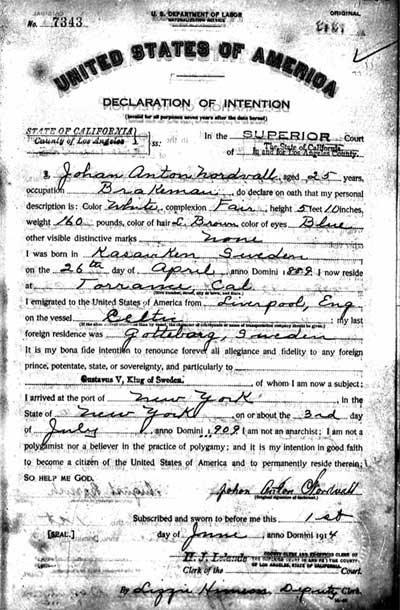 U. S. DEPARTMENT OF LABOR
NATURALIZATION SERVICE
ORIGINAL
No. 7343
UNITED STATES OF AMERICA
DECLARATION OF INTENTION
(Invalid for all purposes seven years after the date hereof)
STATE OF CALIFORNIA
County of Los Angeles
ss:
In the SUPERIOR Court
of The State of California
in and for Los Angeles County.
I, Johan Anton Nordvall, aged 25 years,
occupation Brakeman, do declare on oath that my personal
description is: Color White, complexion Fair, height 5 feet 10 inches,
weight 160 pounds, color of hair L. Brown, color of eyes Blue
other visible distinctive marks None
I was born in Sweden
on the 26th day of April, anno Domini 1889; I now reside
at Torrance Cal
I emigrated to the United States of America from Liverpool, Eng
on the vessel Celtic; my last
foreign residence was Gotteborg, Sweden
It is my bona fide intention to renounce forever all allegiance and fidelity to any foreign
prince, potentate, state, or sovereignty, and particularly to
Gustavus V, King of Sweden, of whom I am now a subject;
I arrived at the port of New York, in the
State of New York, on or about the 3rd day
of July, anno Domini 1909; I am not an anarchist; I am not a
polygamist nor a believer in the practice of polygamy; and it is my intention in good faith
to become a citizen of the United States of America and to permanently reside therein:
SO HELP ME GOD.
Johan Anton Nordvall
(Original signature of declarant.)
Subscribed and sworn to before me this 1st
[SEAL.] day of June, anno Domini 1914
H. J. Lelande
COUNTY CLERK AND EX-OFFICIO CLERK OF
THE SUPERIOR COURT IN AND FOR THE COUNTY
OF LOS ANGELES, STATE OF CALIFORNIA
Clerk of the Court.
By Lizzie Deputy Clerk.